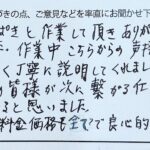 づきの点、ご意見などを率直にお聞かせ下
ぱきと作業して頂きありが
た。作業中こちらからの声
く丁寧に説明してくれまし
皆様が次に繋がる仕
ると思いました
料金価格も全てで良心的